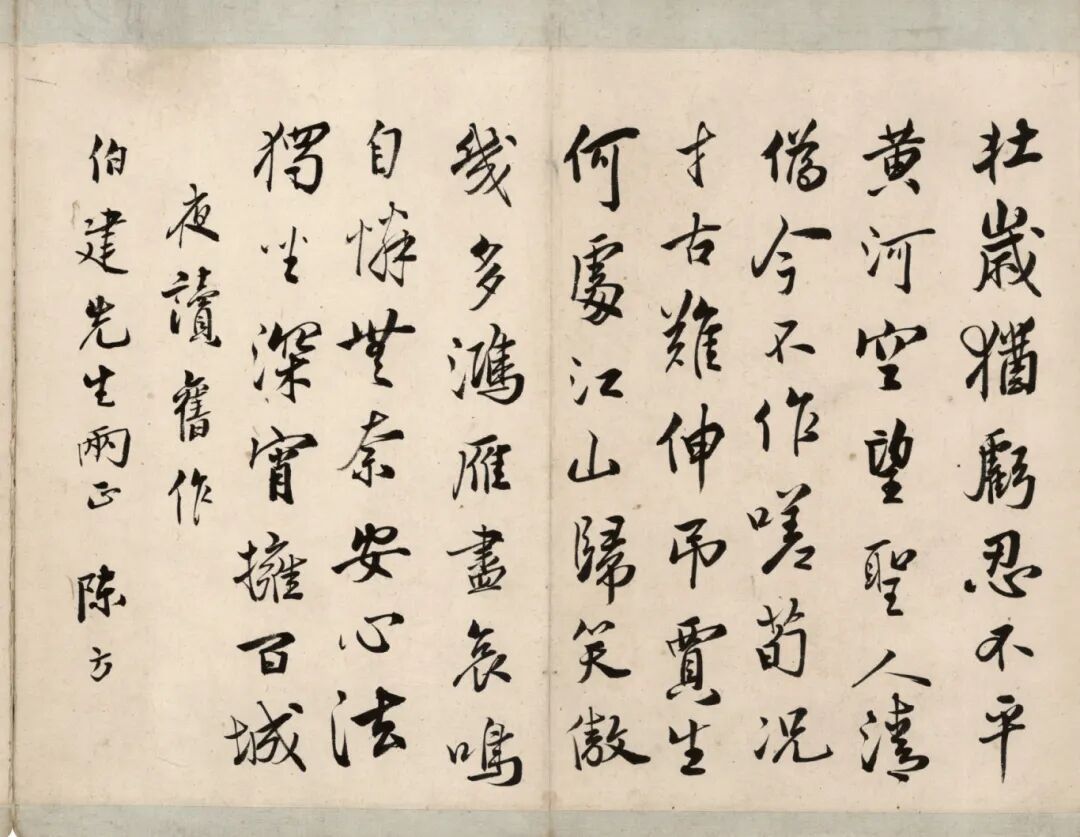 壯歲猶虧忍不平
黃河空望聖人清
僞今不作嗟荀況
才古難伸弔賈生
何處江山歸笑傲
幾多鴻雁盡哀鳴
自憐無奈安心法
獨坐深宵擁百城
夜讀舊作
伯建先生兩正 陳方